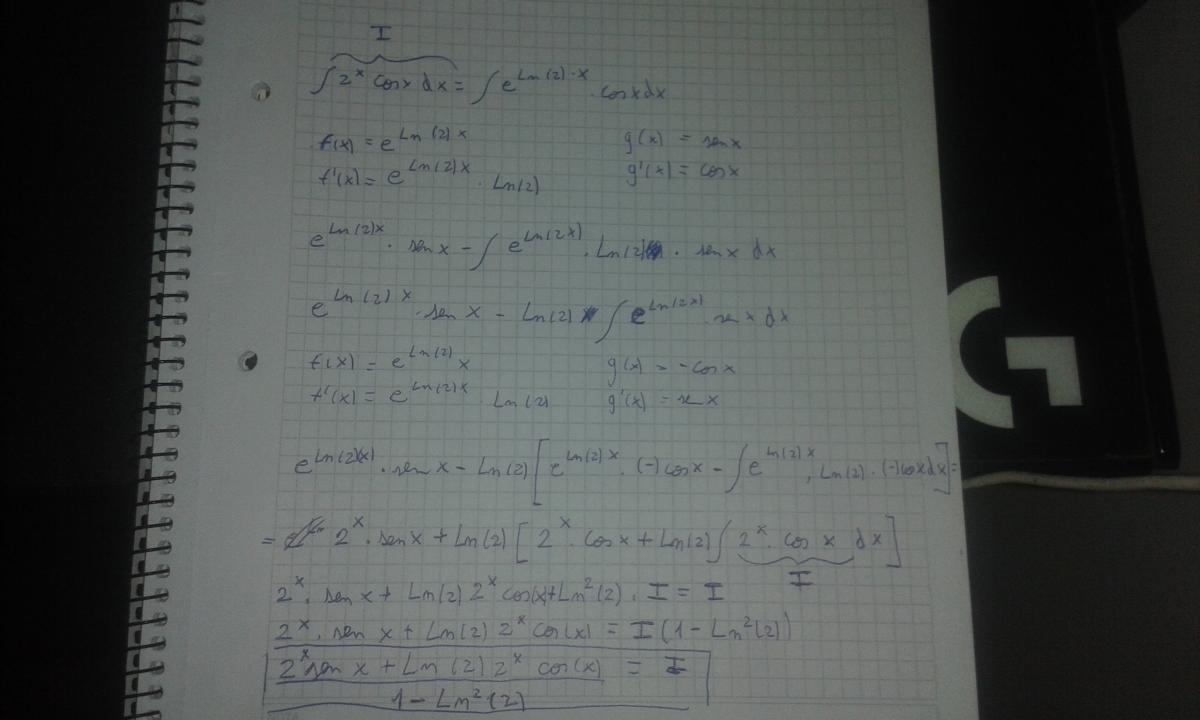 I
∫ 2^x cosx dx = ∫ e^(Ln(2)·x) · cosx dx
f(x) = e^(Ln(2)x) g(x) = senx
f'(x) = e^(Ln(2)x) · Ln(2) g'(x) = cosx
e^(Ln(2)x) · senx - ∫ e^(Ln(2x)) · Ln(2) · senx dx
e^(Ln(2)x) · sen x - Ln(2) ∫ e^(Ln(2x)) · senx dx
f(x) = e^(Ln(2)) x g(x) = -cosx
f'(x) = e^(Ln(2)x) Ln(2) g'(x) = senx
e^(Ln(2)(x)) · senx - Ln(2) [ e^(Ln(2)x) · (-)cosx - ∫ e^(Ln(2)x) · Ln(2) · (-)cosxdx ] =
= 2^x · senx + Ln(2) [ 2^x · cosx + Ln(2) ∫ 2^x · cos x dx ]
I
2^x · sen x + Ln(2) 2^x cos(x) + Ln²(2) · I = I
2^x · sen x + Ln(2) 2^x cos(x) = I (1 - Ln²(2))
2^x sen x + Ln(2) 2^x cos(x) = I
1 - Ln²(2)
G